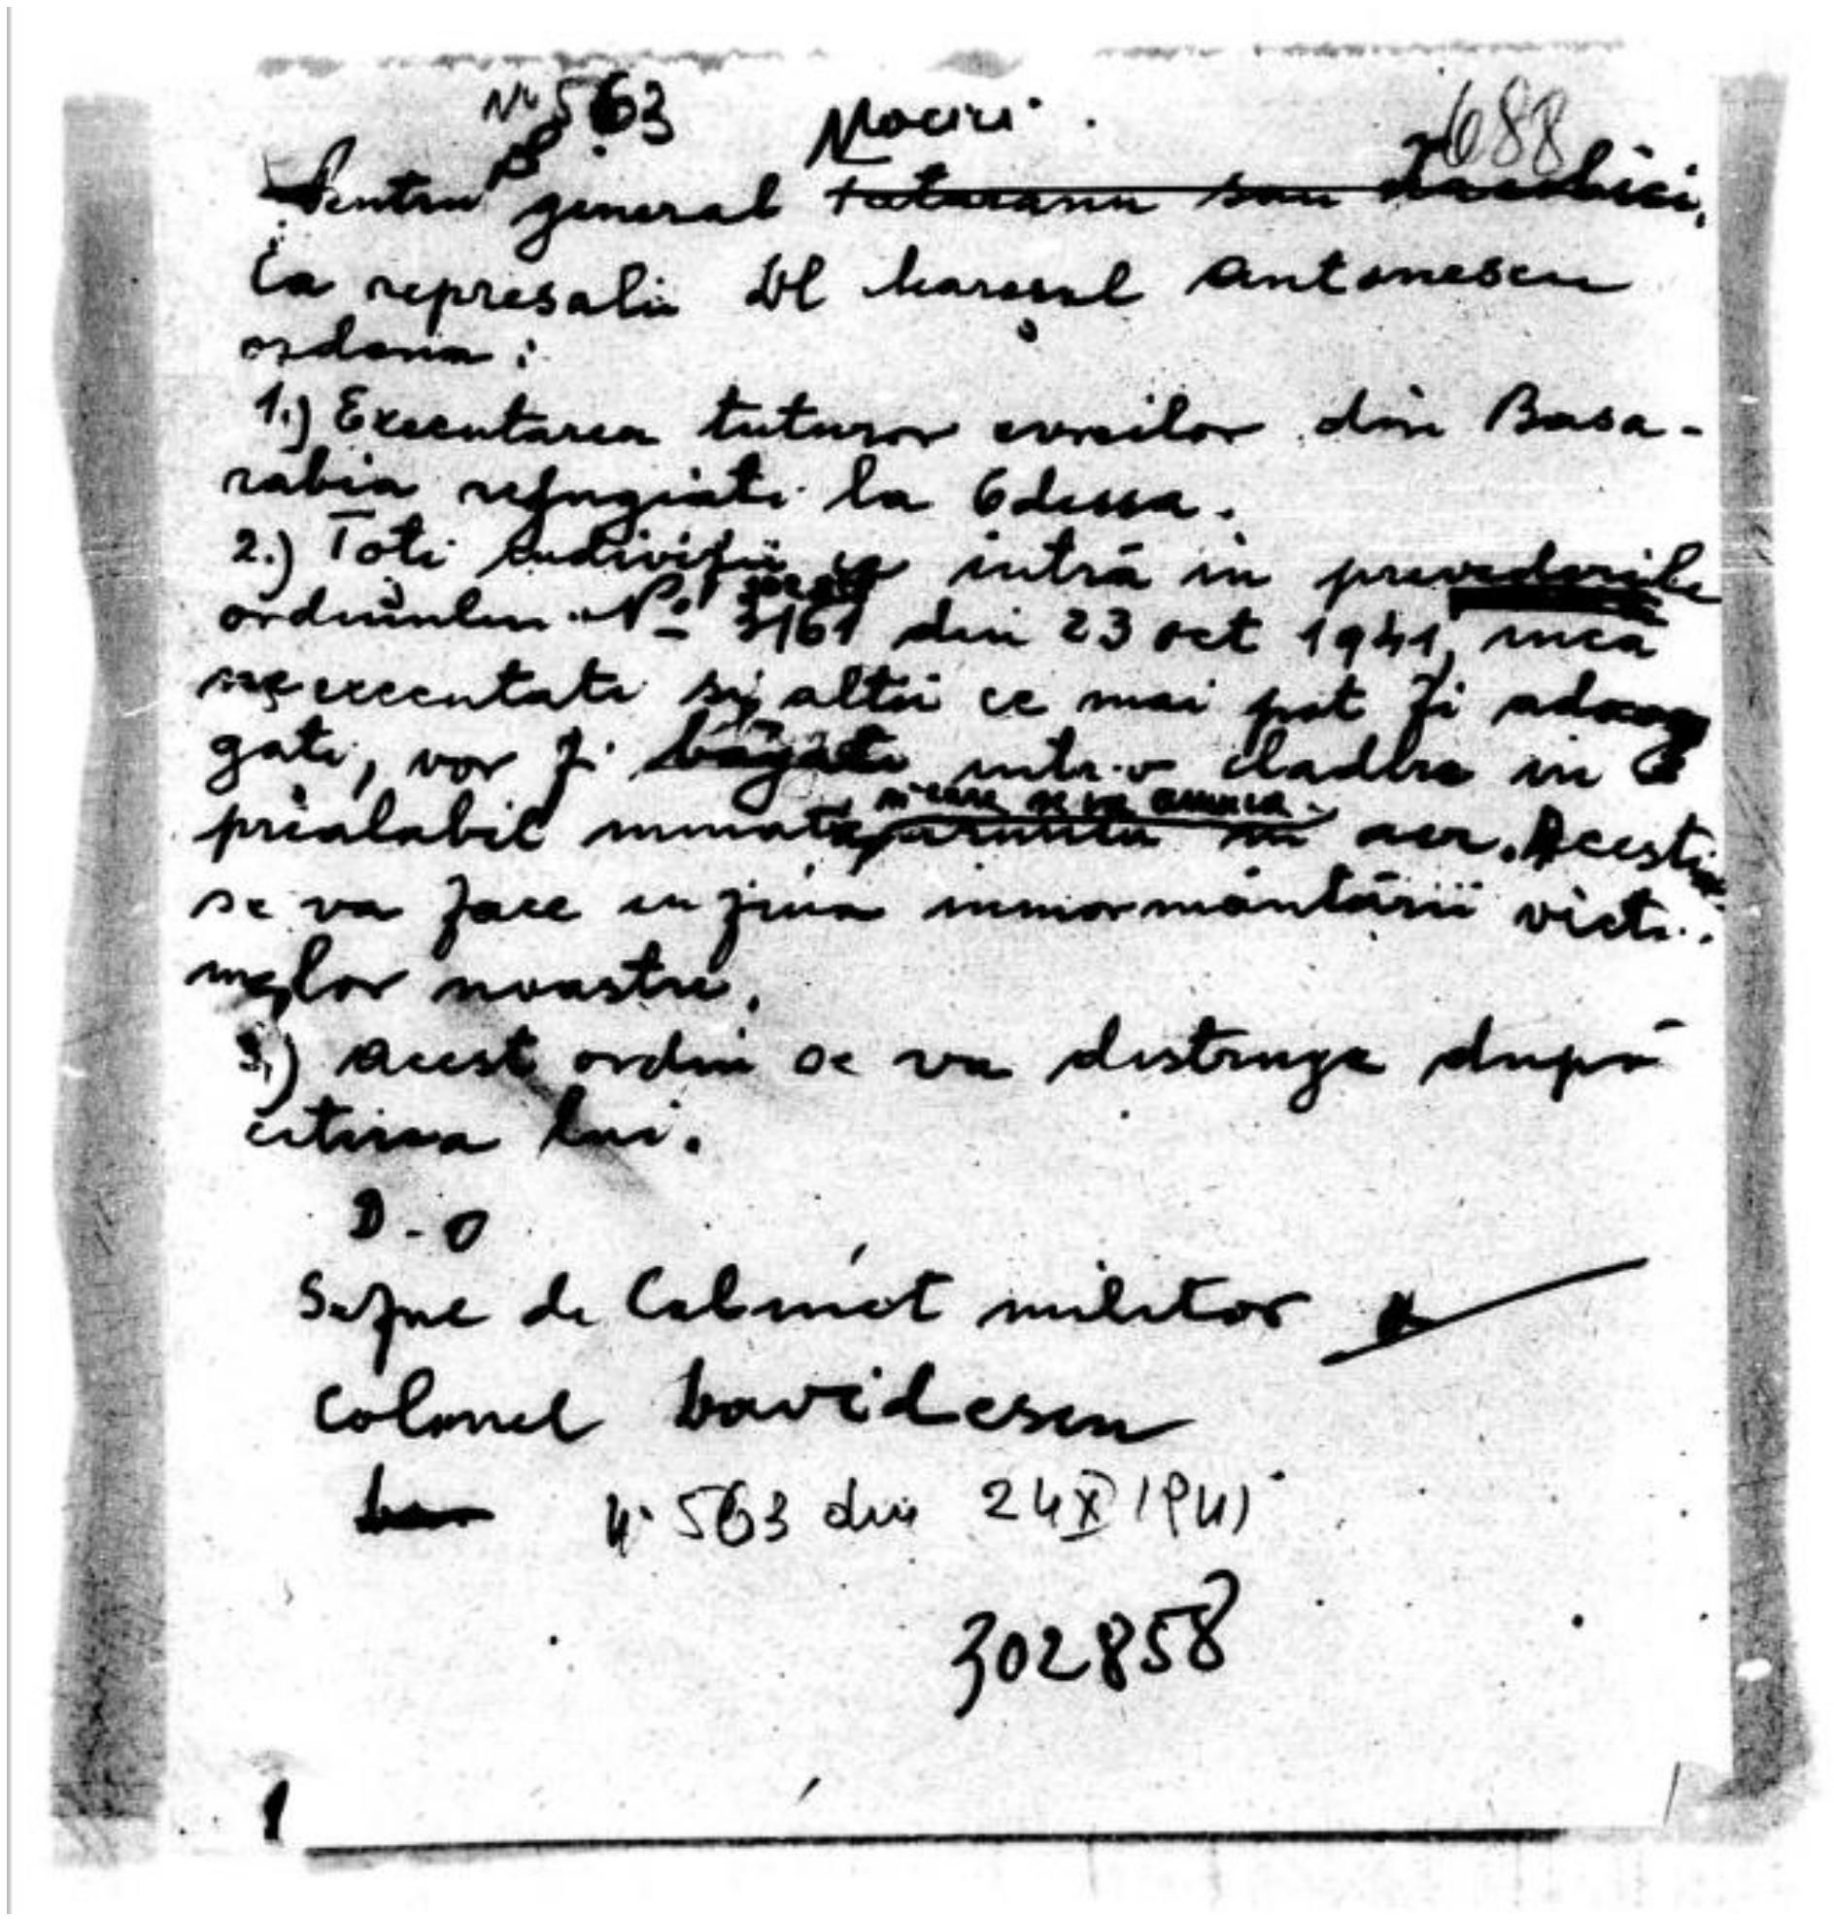 No 563 Macici.
688
Pentru general Tataranu sau Iacobici.
Ca represalii Dl Maresal Antonescu
ordona:
1.) Executarea tuturor evreilor din Basa-
rabia refugiati la Odessa.
2.) Toti indivizii ce intră in prevederile
ordinului No 3161 din 23 oct 1941, inca
ne executati si altii ce mai pot fi adaog
gati, vor fi băgati intr-o cladire in
prealabil minata
si care se va arunca
in aer. Acesti
se va face in ziua inmormântării victi-
melor noastre.
3.) Acest ordin se va distruge după
citirea lui.
D-O
Seful de Cabinet militar
Colonel Davidescu
N. 563 din 24 X 1941
302858